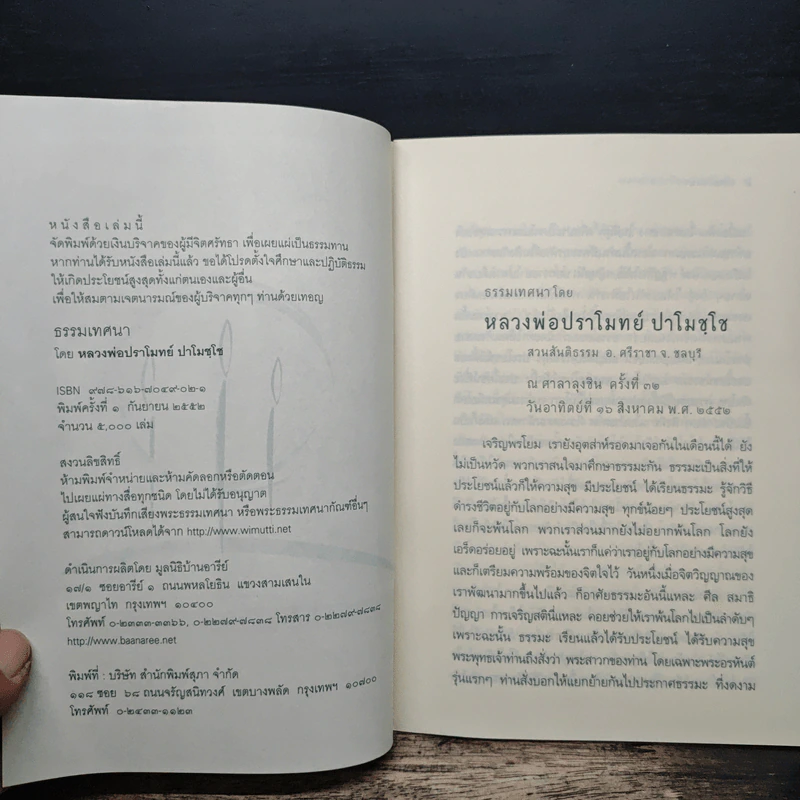 หนังสือเล่มนี้
จัดพิมพ์ด้วยเงินบริจาคของผู้มีจิตศรัทธา เพื่อเผยแผ่เป็นธรรมทาน
หากท่านได้รับหนังสือเล่มนี้แล้ว ขอได้โปรดตั้งใจศึกษาและปฏิบัติธรรม
ให้เกิดประโยชน์สูงสุดทั้งแก่ตนเองและผู้อื่น
เพื่อให้สมตามเจตนารมณ์ของผู้บริจาคทุกๆ ท่านด้วยเทอญ
ธรรมเทศนา
โดย หลวงพ่อปราโมทย์ ปาโมชฺโช
ISBN ๙๗๘-๖๑๖-๗๐๔๙-๐๒-๑
พิมพ์ครั้งที่ ๑ กันยายน ๒๕๕๒
จำนวน ๕,๐๐๐ เล่ม
สงวนลิขสิทธิ์
ห้ามพิมพ์จำหน่ายและห้ามคัดลอกหรือตัดตอน
ไปเผยแผ่ทางสื่อทุกชนิด โดยไม่ได้รับอนุญาต
ผู้สนใจฟังบันทึกเสียงพระธรรมเทศนา หรือพระธรรมเทศนากัณฑ์อื่นๆ
สามารถดาวน์โหลดได้จาก http://www.wimutti.net
ดำเนินการผลิตโดย มูลนิธิบ้านอารีย์
๑๗/๑ ซอยอารีย์ ๑ ถนนพหลโยธิน แขวงสามเสนใน
เขตพญาไท กรุงเทพฯ ๑๐๔๐๐
โทรศัพท์ ๐-๒๓๓๓-๓๓๖๖, ๐-๒๒๗๙-๗๘๓๘ โทรสาร ๐-๒๒๗๙-๗๘๓๘
http://www.baanaree.net
พิมพ์ที่ : บริษัท สำนักพิมพ์สุภา จำกัด
๑๑๘ ซอย ๖๘ ถนนจรัญสนิทวงศ์ เขตบางพลัด กรุงเทพฯ ๑๐๗๐๐
โทรศัพท์ ๐-๒๔๓๓-๑๑๒๓
ธรรมเทศนา โดย
หลวงพ่อปราโมทย์ ปาโมชฺโช
สวนสันติธรรม อ. ศรีราชา จ. ชลบุรี
ณ ศาลาลุงชิน ครั้งที่ ๓๒
วันอาทิตย์ที่ ๑๖ สิงหาคม พ.ศ. ๒๕๕๒
เจริญพรโยม เรายังอุตส่าห์รอดมาเจอกันในเดือนนี้ได้ ยัง
ไม่เป็นหวัด พวกเราสนใจมาศึกษาธรรมะกัน ธรรมะเป็นสิ่งที่ให้
ประโยชน์แล้วก็ให้ความสุข มีประโยชน์ ได้เรียนธรรมะ รู้จักวิธี
ดำรงชีวิตอยู่กับโลกอย่างมีความสุข ทุกข์น้อยๆ ประโยชน์สูงสุด
เลยก็จะพ้นโลก พวกเราส่วนมากยังไม่อยากพ้นโลก โลกยัง
เอร็ดอร่อยอยู่ เพราะฉะนั้นเราก็แค่ว่าเราอยู่กับโลกอย่างมีความสุข
และก็เตรียมความพร้อมของจิตใจไว้ วันหนึ่งเมื่อจิตวิญญาณของ
เราพัฒนามากขึ้นไปแล้ว ก็อาศัยธรรมะอันนี้แหละ ศีล สมาธิ
ปัญญา การเจริญสตินี่แหละ คอยช่วยให้เราพ้นโลกไปเป็นลำดับๆ
เพราะฉะนั้น ธรรมะ เรียนแล้วได้รับประโยชน์ ได้รับความสุข
พระพุทธเจ้าท่านถึงสั่งว่า พระสาวกของท่าน โดยเฉพาะพระอรหันต์
รุ่นแรกๆ ท่านสั่งบอกให้แยกย้ายกันไปประกาศธรรมะ ที่งดงาม